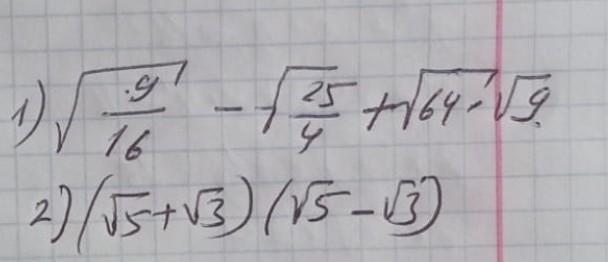 1) √(9/16) - √(25/4) + √64 · √9
2) (√5 + √3) (√5 - √3)